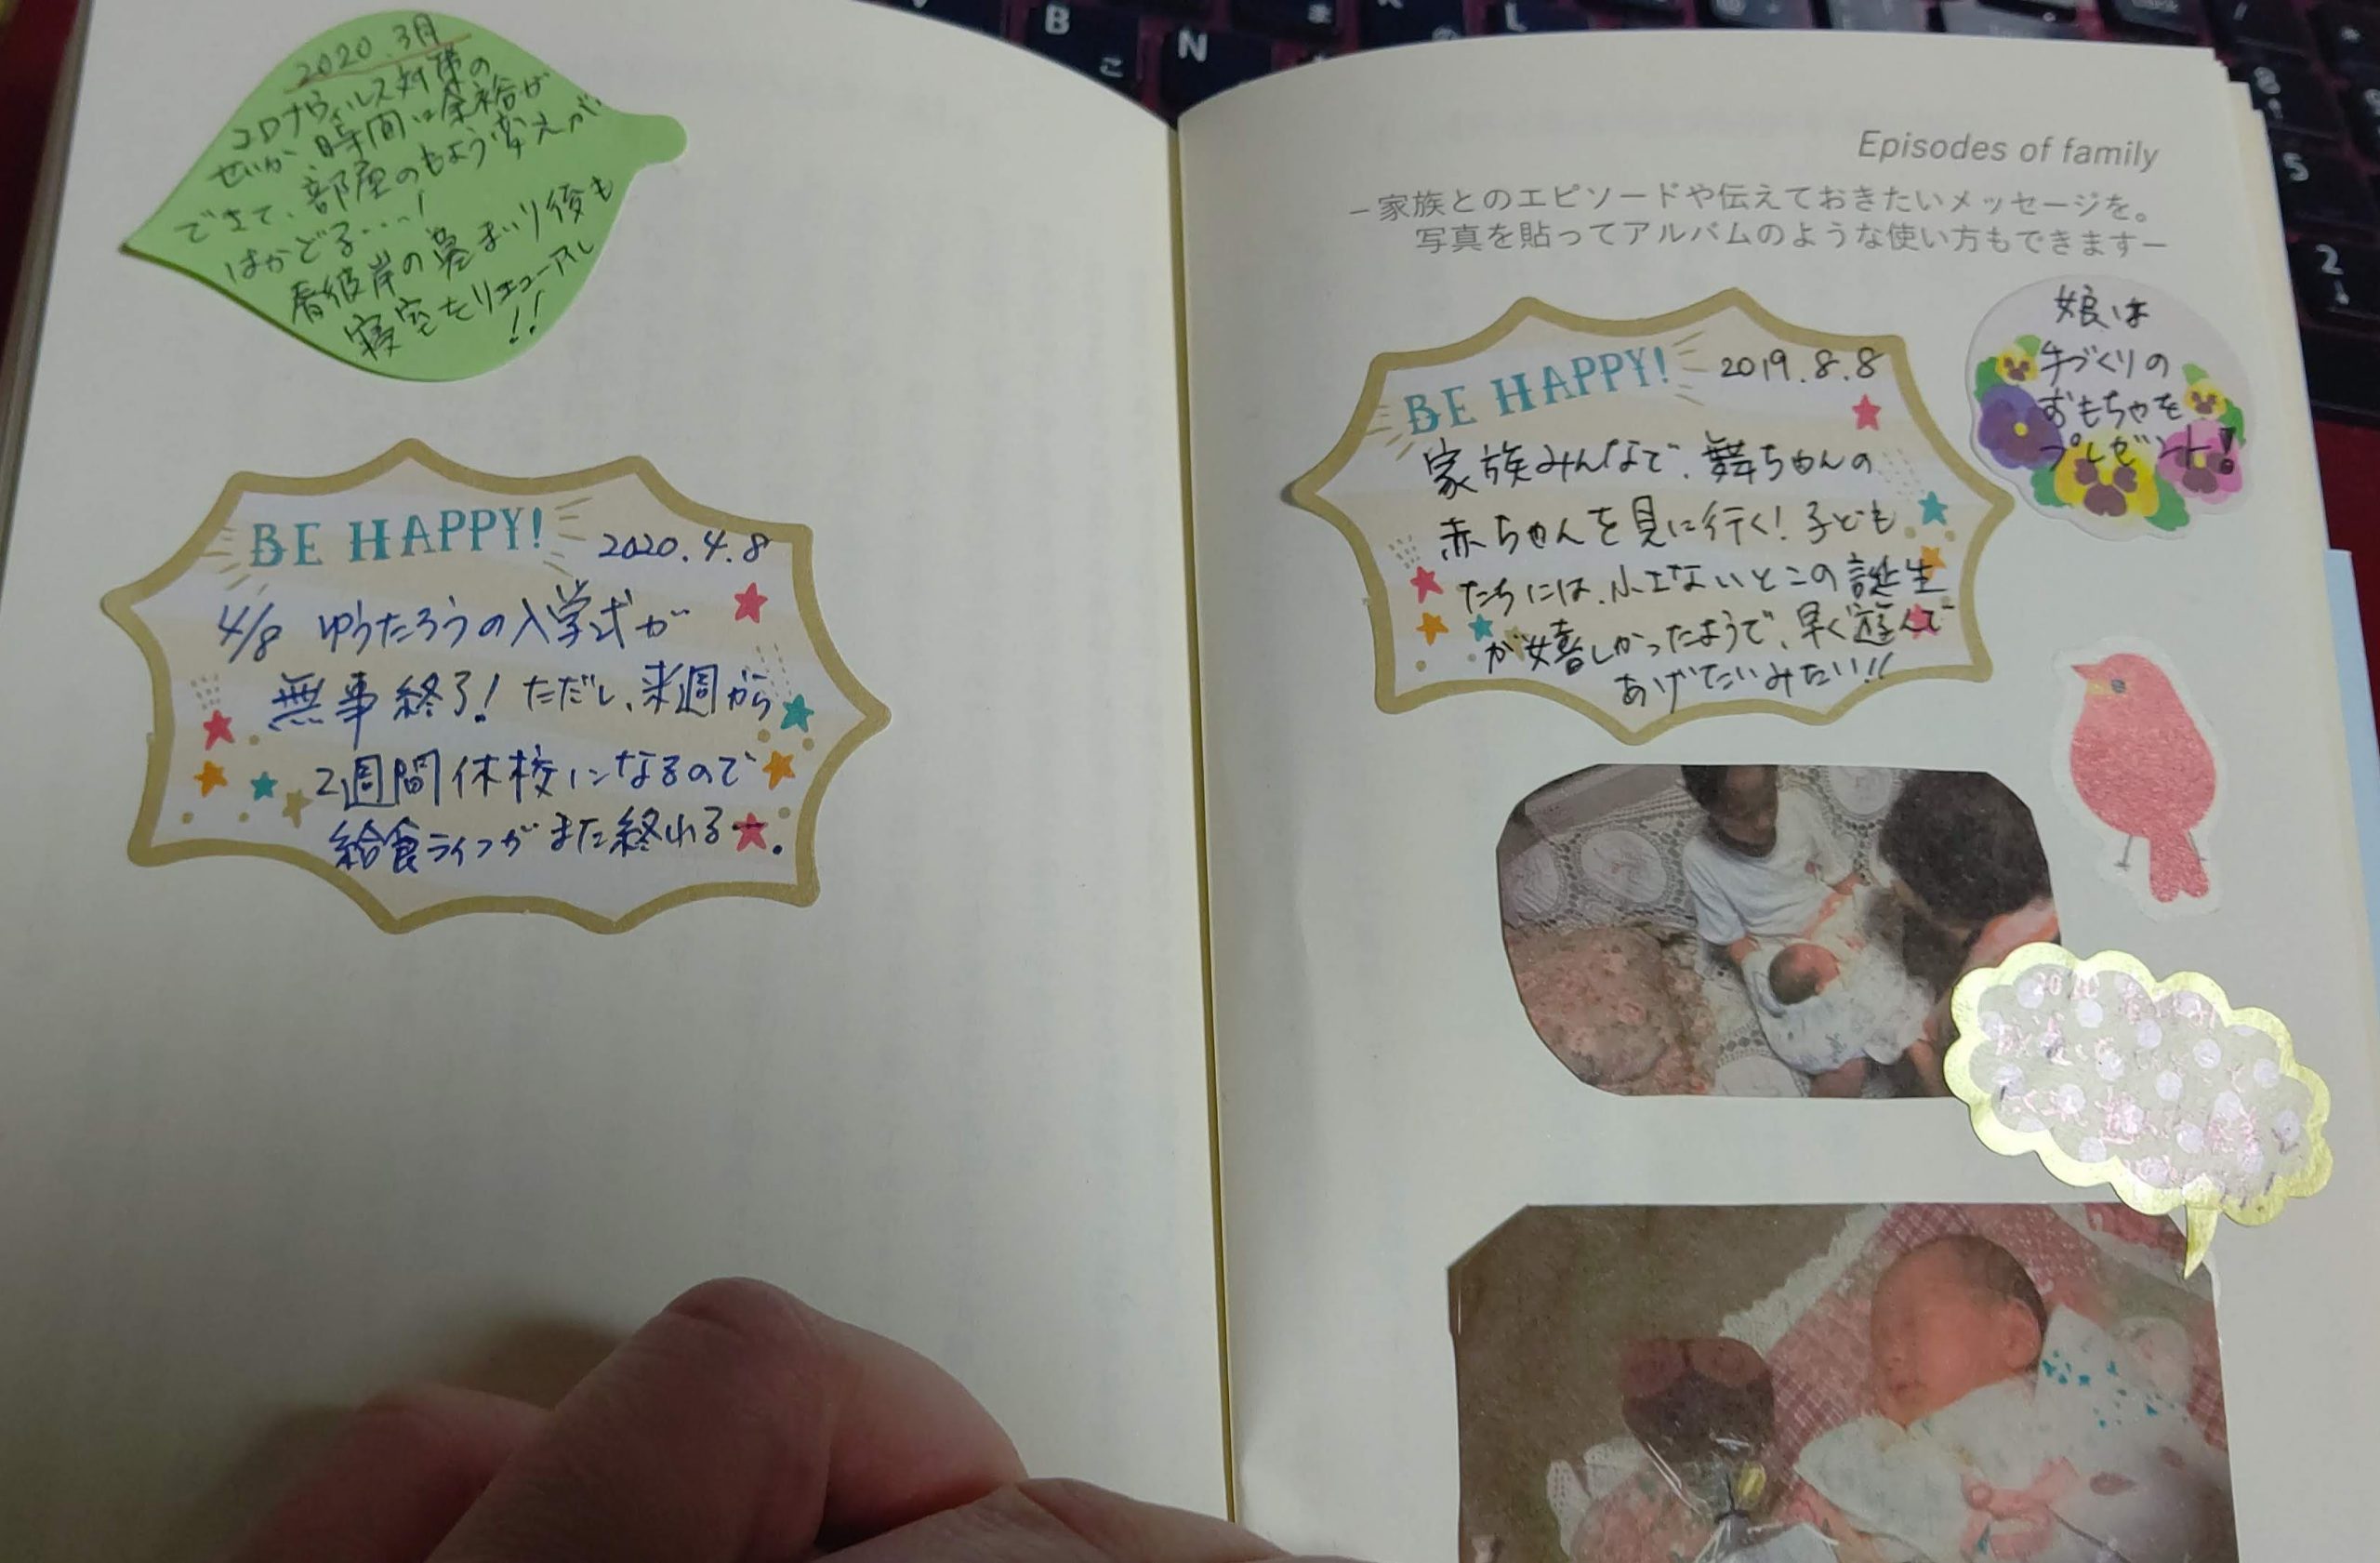 2020.3月
コロナウィルス対策の
せいか、時間に余裕が
できて、部屋のもよう変えが
はかどる・・・!
春彼岸の墓まいり後も
寝室をリニューアル
!!
BE HAPPY! 2020.4.8
4/8 ゆうたろうの入学式が
無事終了! ただし、来週から
2週間休校になるので
給食ライフがまた終わるー。
Episodes of family
−家族とのエピソードや伝えておきたいメッセージを。
写真を貼ってアルバムのような使い方もできます−
BE HAPPY! 2019.8.8
家族みんなで、舞ちゃんの
赤ちゃんを見に行く! 子ども
たちには、小さないとこの誕生
が嬉しかったようで、早く遊んで
あげたいみたい!!
娘は
手づくりの
おもちゃを
プレゼント!
B
こ
N
L
5
2